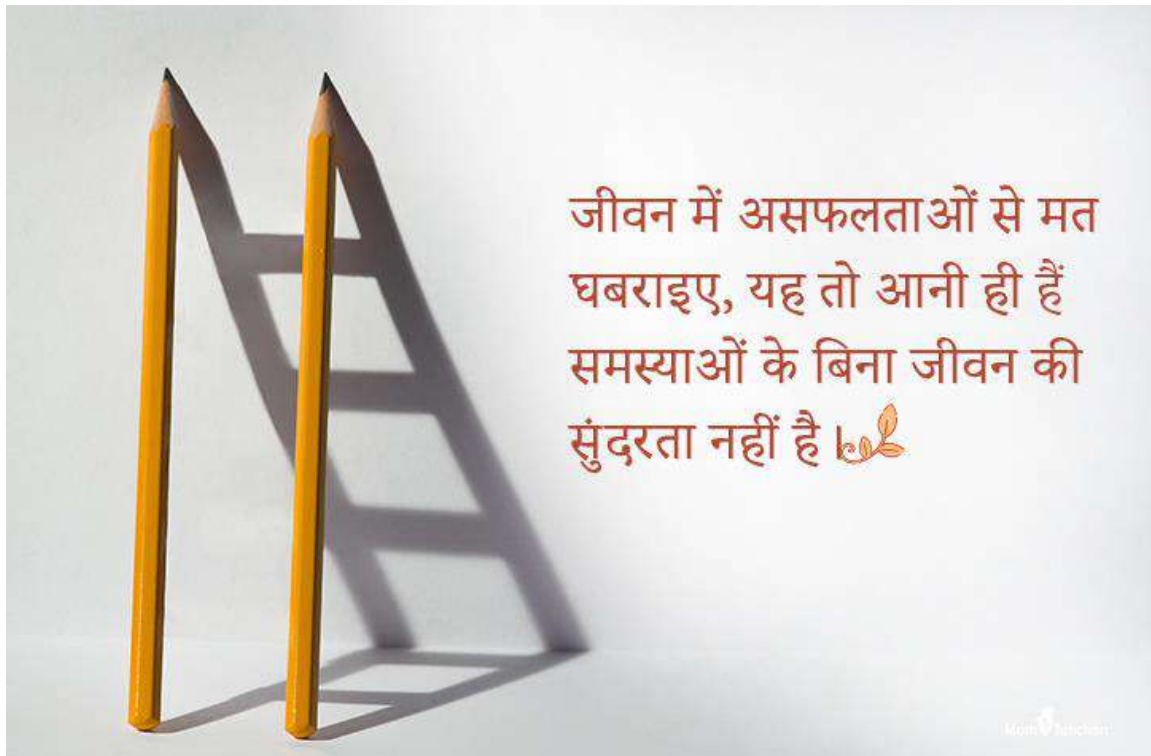 जीवन में असफलताओं से मत
घबराइए, यह तो आनी ही हैं
समस्याओं के बिना जीवन की
सुंदरता नहीं है।
MomJunction